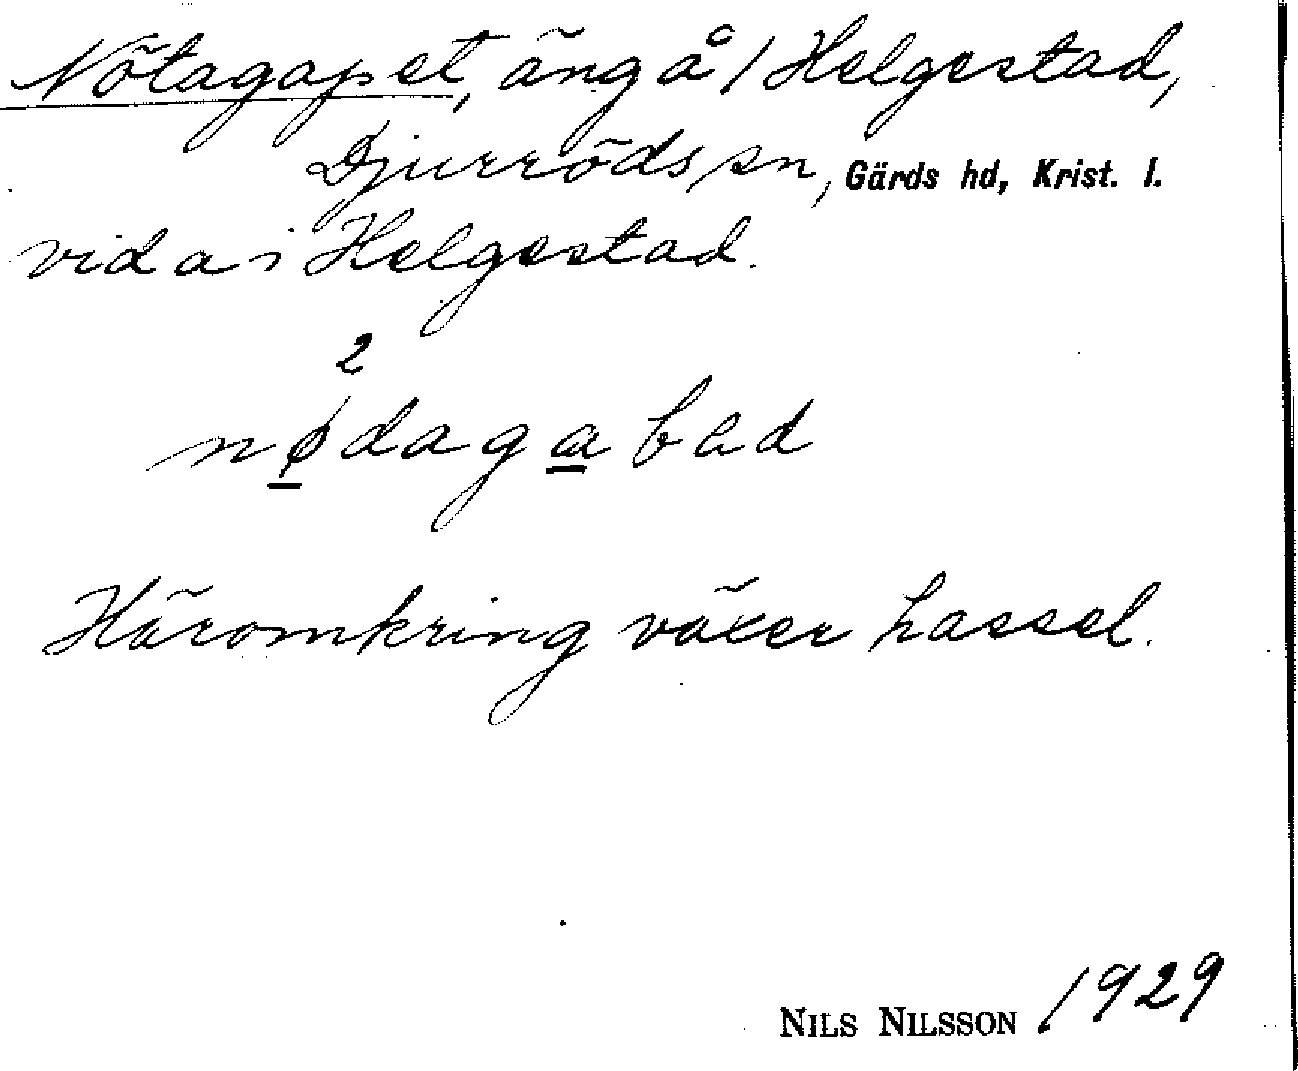 Nötagapet, äng å 1 Helgestad,
Djurröds sn, Gärds hd, Krist. l.
vid a i Helgestad.
2
nødagabad
Häromkring växer hassel.
NILS NILSSON 1929